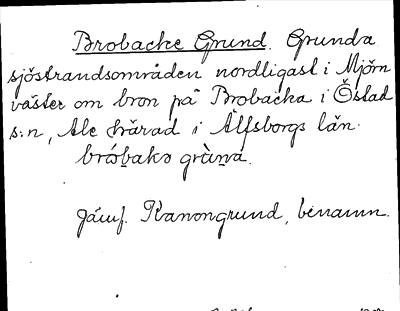 Brobacke Grund. Grunda
sjöstrandsområden nordligast i Mjörn
väster om bron på Brobacka i Östad
s:n, Ale härad i Älfsborgs län.
Jämf. Kanongrund, benämn.